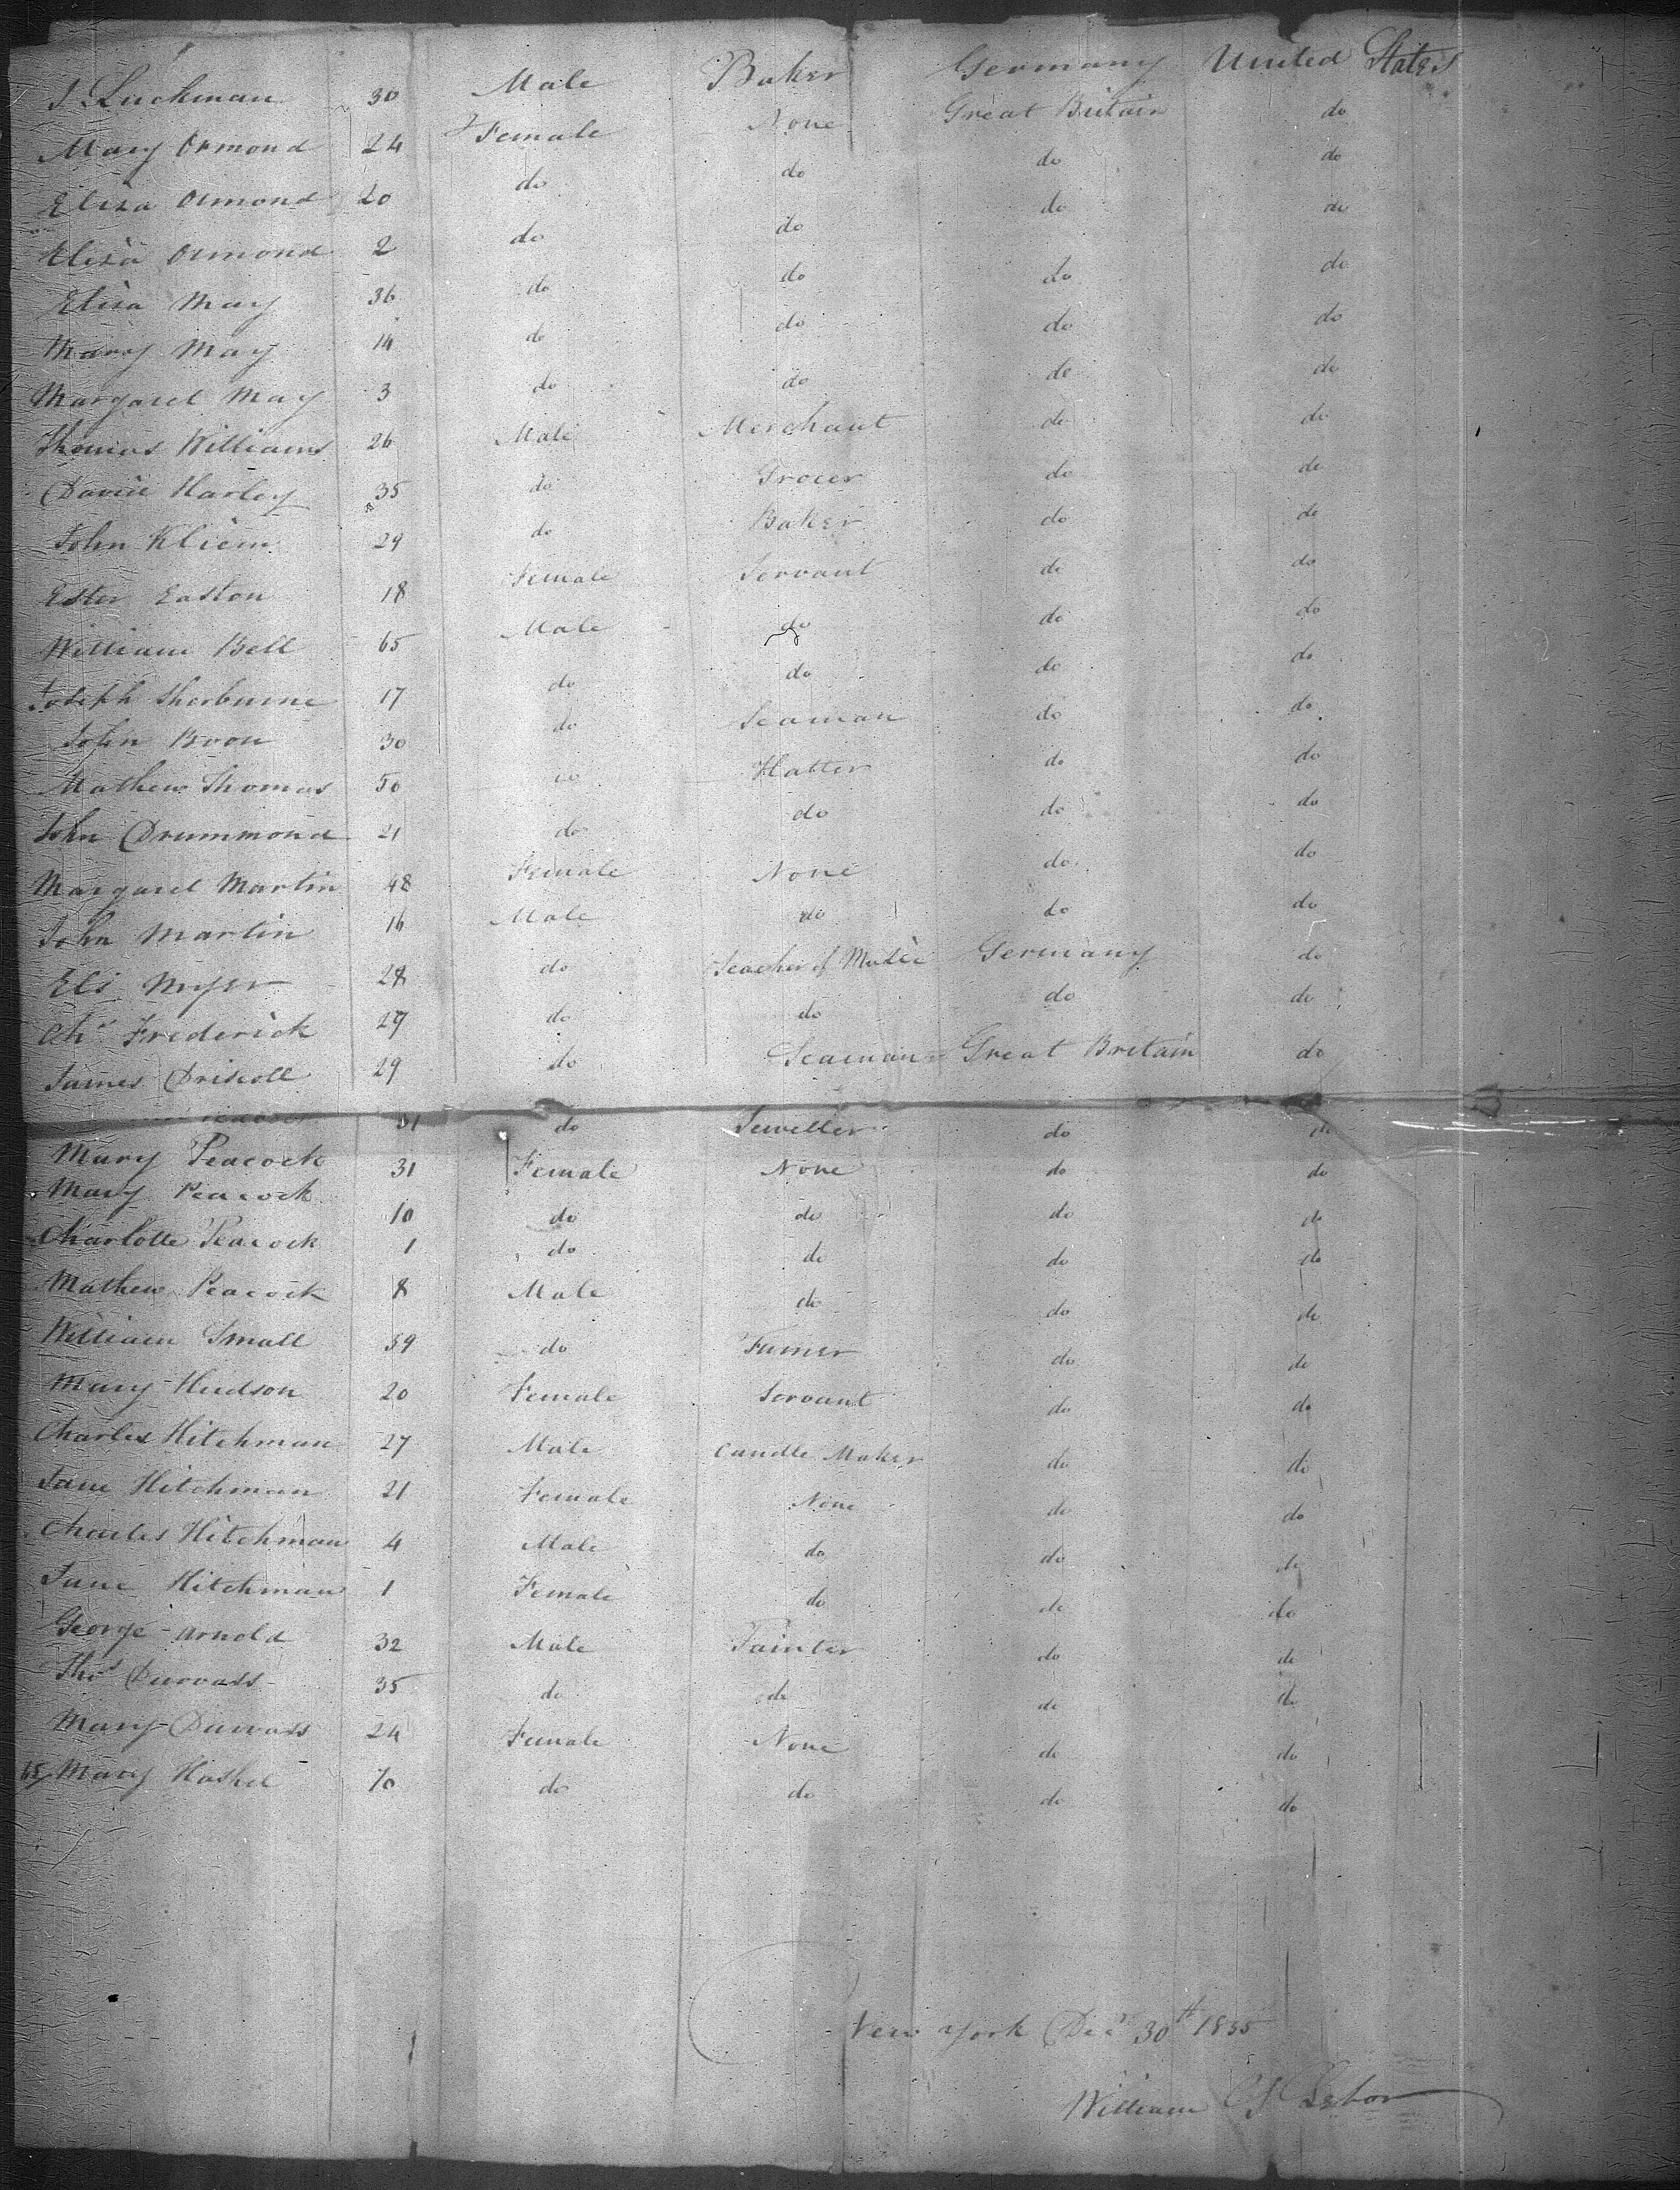 J. Luckman 30 Male Baker Germany United States
Mary Ormond 24 Female None Great Britain do
Eliza Ormond 20 do do do do
Eliza Ormond 2 do do do do
Eliza May 36 do do do do
Mary May 14 do do do do
Margaret May 3 do do do do
Thomas Williams 26 Male Merchant do do
David Harley 35 do Grocer do do
John Kliem 29 do Baker do do
Ester Easton 18 Female Servant do do
William Bell 65 Male do do do
Joseph Sherburne 17 do do do do
John Boon 30 do Seaman do do
Mathew Thomas 50 do Hatter do do
John Drummond 21 do do do do
Margaret Martin 48 Female None do do
John Martin 16 Male do do do
Eli Myer 28 do Teacher of Music Germany do
Chs Frederick 29 do do do do
James Driscoll 29 do Seaman Great Britain do
31 do Jeweller do do
Mary Peacock 31 Female None do do
Mary Peacock 10 do do do do
Charlotte Peacock 1 do do do do
Mathew Peacock 8 Male do do do
William Small 39 do Farmer do do
Mary Hudson 20 Female Servant do do
Charles Hitchman 27 Male Candle Maker do do
Jane Hitchman 21 Female None do do
Charles Hitchman 4 Male do do do
Jane Hitchman 1 Female do do do
George Arnold 32 Male Painter do do
Thos Durvass 35 do do do do
Mary Durvass 24 Female None do do
Mary Haskel 70 do do do do
New York Decr 30th 1835
William